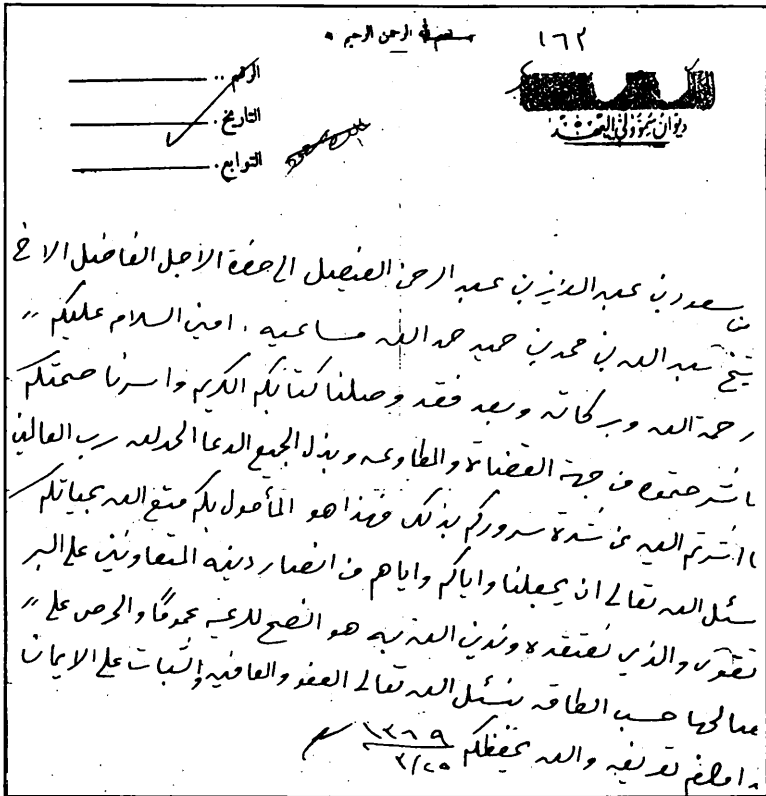 ١٦٢
بسم الله الرحمن الرحيم
ديوان سمو ولي العهد
الرقم ..
التاريخ .
التوابع .
من سعود بن عبد العزيز بن عبد الرحمن الفيصل الى حضرة الاجل الفاضل الاخ
شيخ عبد الله بن محمد بن حميد حمد الله مساعيه . امين السلام عليكم ،،
رحمة الله وبركاته وبعد فقد وصلنا كتابكم الكريم واسرنا صحتكم
ما شرحتموه من جهة القضاة والطاوعه وبذل الجميع الدعا الحمد لله رب العالمين
ما اشرتم اليه من شدة سروركم بذلك فهذا هو المأمول بكم متع الله بحياتكم
نسئل الله تعالى ان يجعلنا واياكم واياهم من انصار دينه المتعاونين على البر
تقوى والذي نعتقده وندين الله به هو النصح للرعيه عموماً والحرص على ،،
مصالحها حسب الطاقه نسئل الله تعالى العفو والعافيه والثبات على الايمان
تعريفه والله يحفظكم
١٣٦٩
٣/٢٥